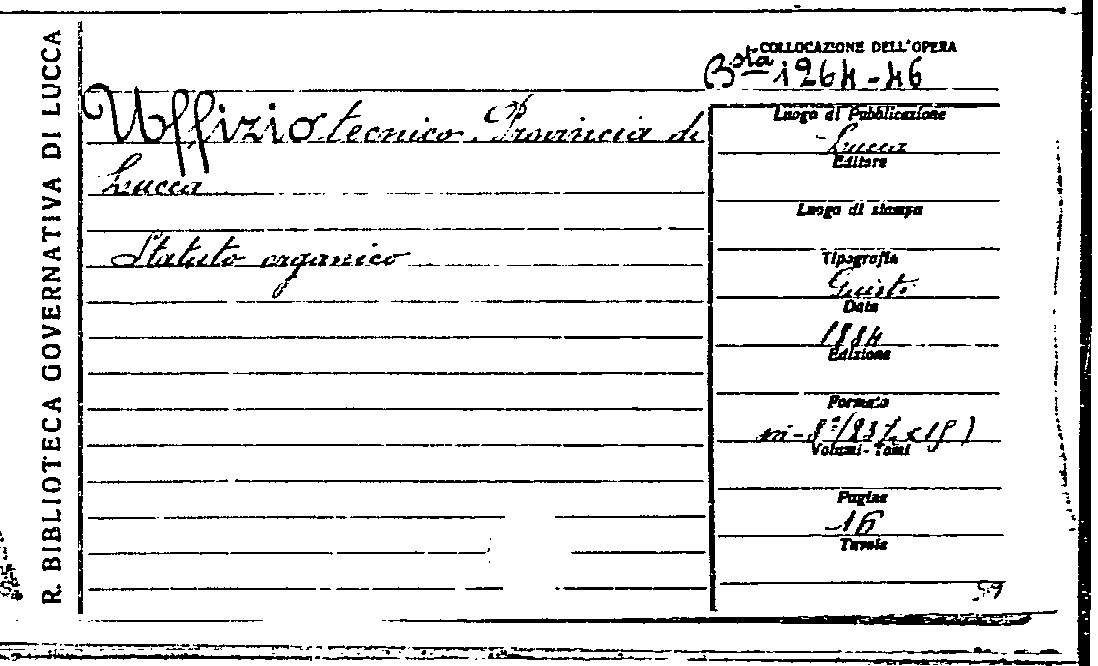 R. BIBLIOTECA GOVERNATIVA DI LUCCA
COLLOCAZIONE DELL'OPERA
Bsta 1264-46
Uffizio tecnico. Provincia di
Lucca
Statuto organico
Luogo di Pubblicazione
Lucca
Editore
Luogo di stampa
Tipografia
Giusti
Data
1884
Edizione
Formato
in-8°
Volumi-Tomi
Pagine
16
Tavole